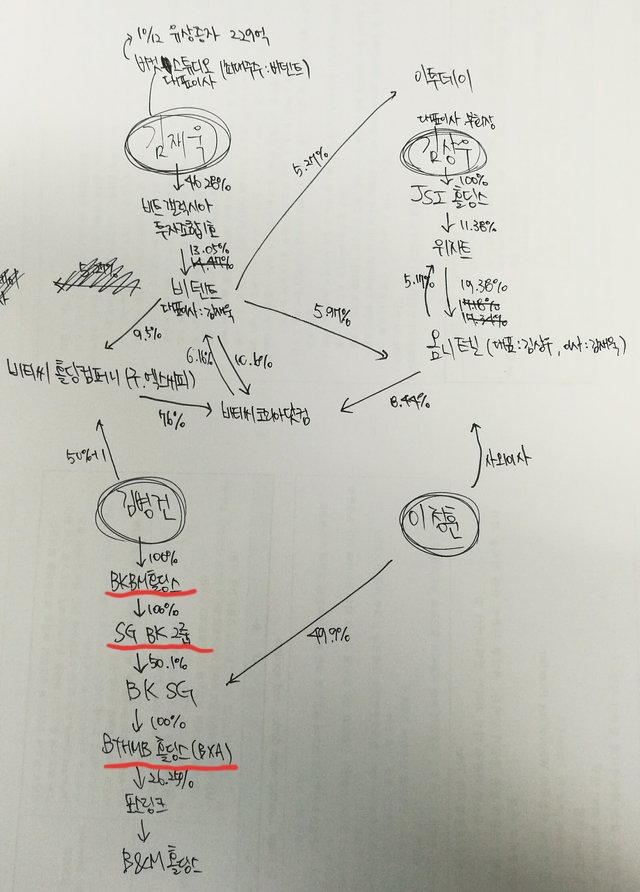 10/12 유상증자 229억
버킷스튜디오 (최대주주:비덴트)
대표이사
이투데이
김재욱
대표이사 부회장
김상우
46.28%
5.27%
100%
비트갤럭시아
투자조합1호
JSI 홀딩스
11.38%
13.05%
14.47%
위지트
5.27%
비덴트
대표이사:김재욱
5.17%
19.38%
17.18%
17.34%
9.5%
5.97%
6.16%
10.6%
옴니텔 (대표:김상우, 이사:김재욱)
비티씨 홀딩컴퍼니 (구.엑스씨피)
76%
비티씨코리아닷컴
8.44%
50%+1
사외이사
김병건
이정훈
100%
BKBM홀딩스
100%
SG BK 그룹
49.9%
50.1%
BK SG
100%
BTHMB 홀딩스(BXA)
26.25%
판링크
B&M 홀딩스